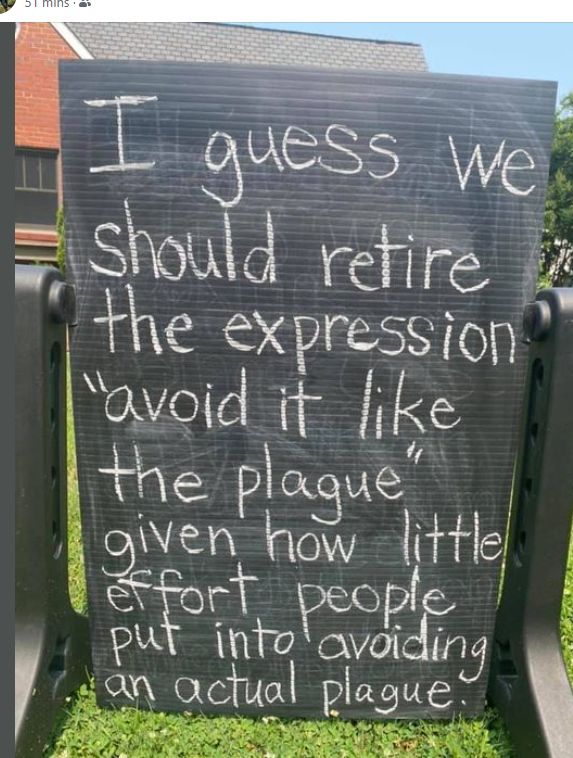 51 mins ·
I guess we
should retire
the expression
"avoid it like
the plague"
given how little
effort people
put into avoiding
an actual plague.